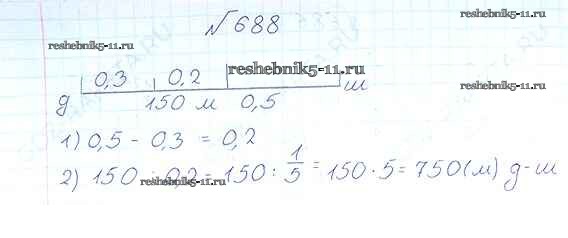 №688
reshebnik5-11.ru
reshebnik5-11.ru
0,3 0,2 reshebnik5-11.ru
д 150 м 0,5 ш
reshebnik5-11.ru
1) 0,5 - 0,3 = 0,2
2) 150 : 0,2 = 150 : 1/5 = 150 · 5 = 750 (м) д-ш
reshebnik5-11.ru